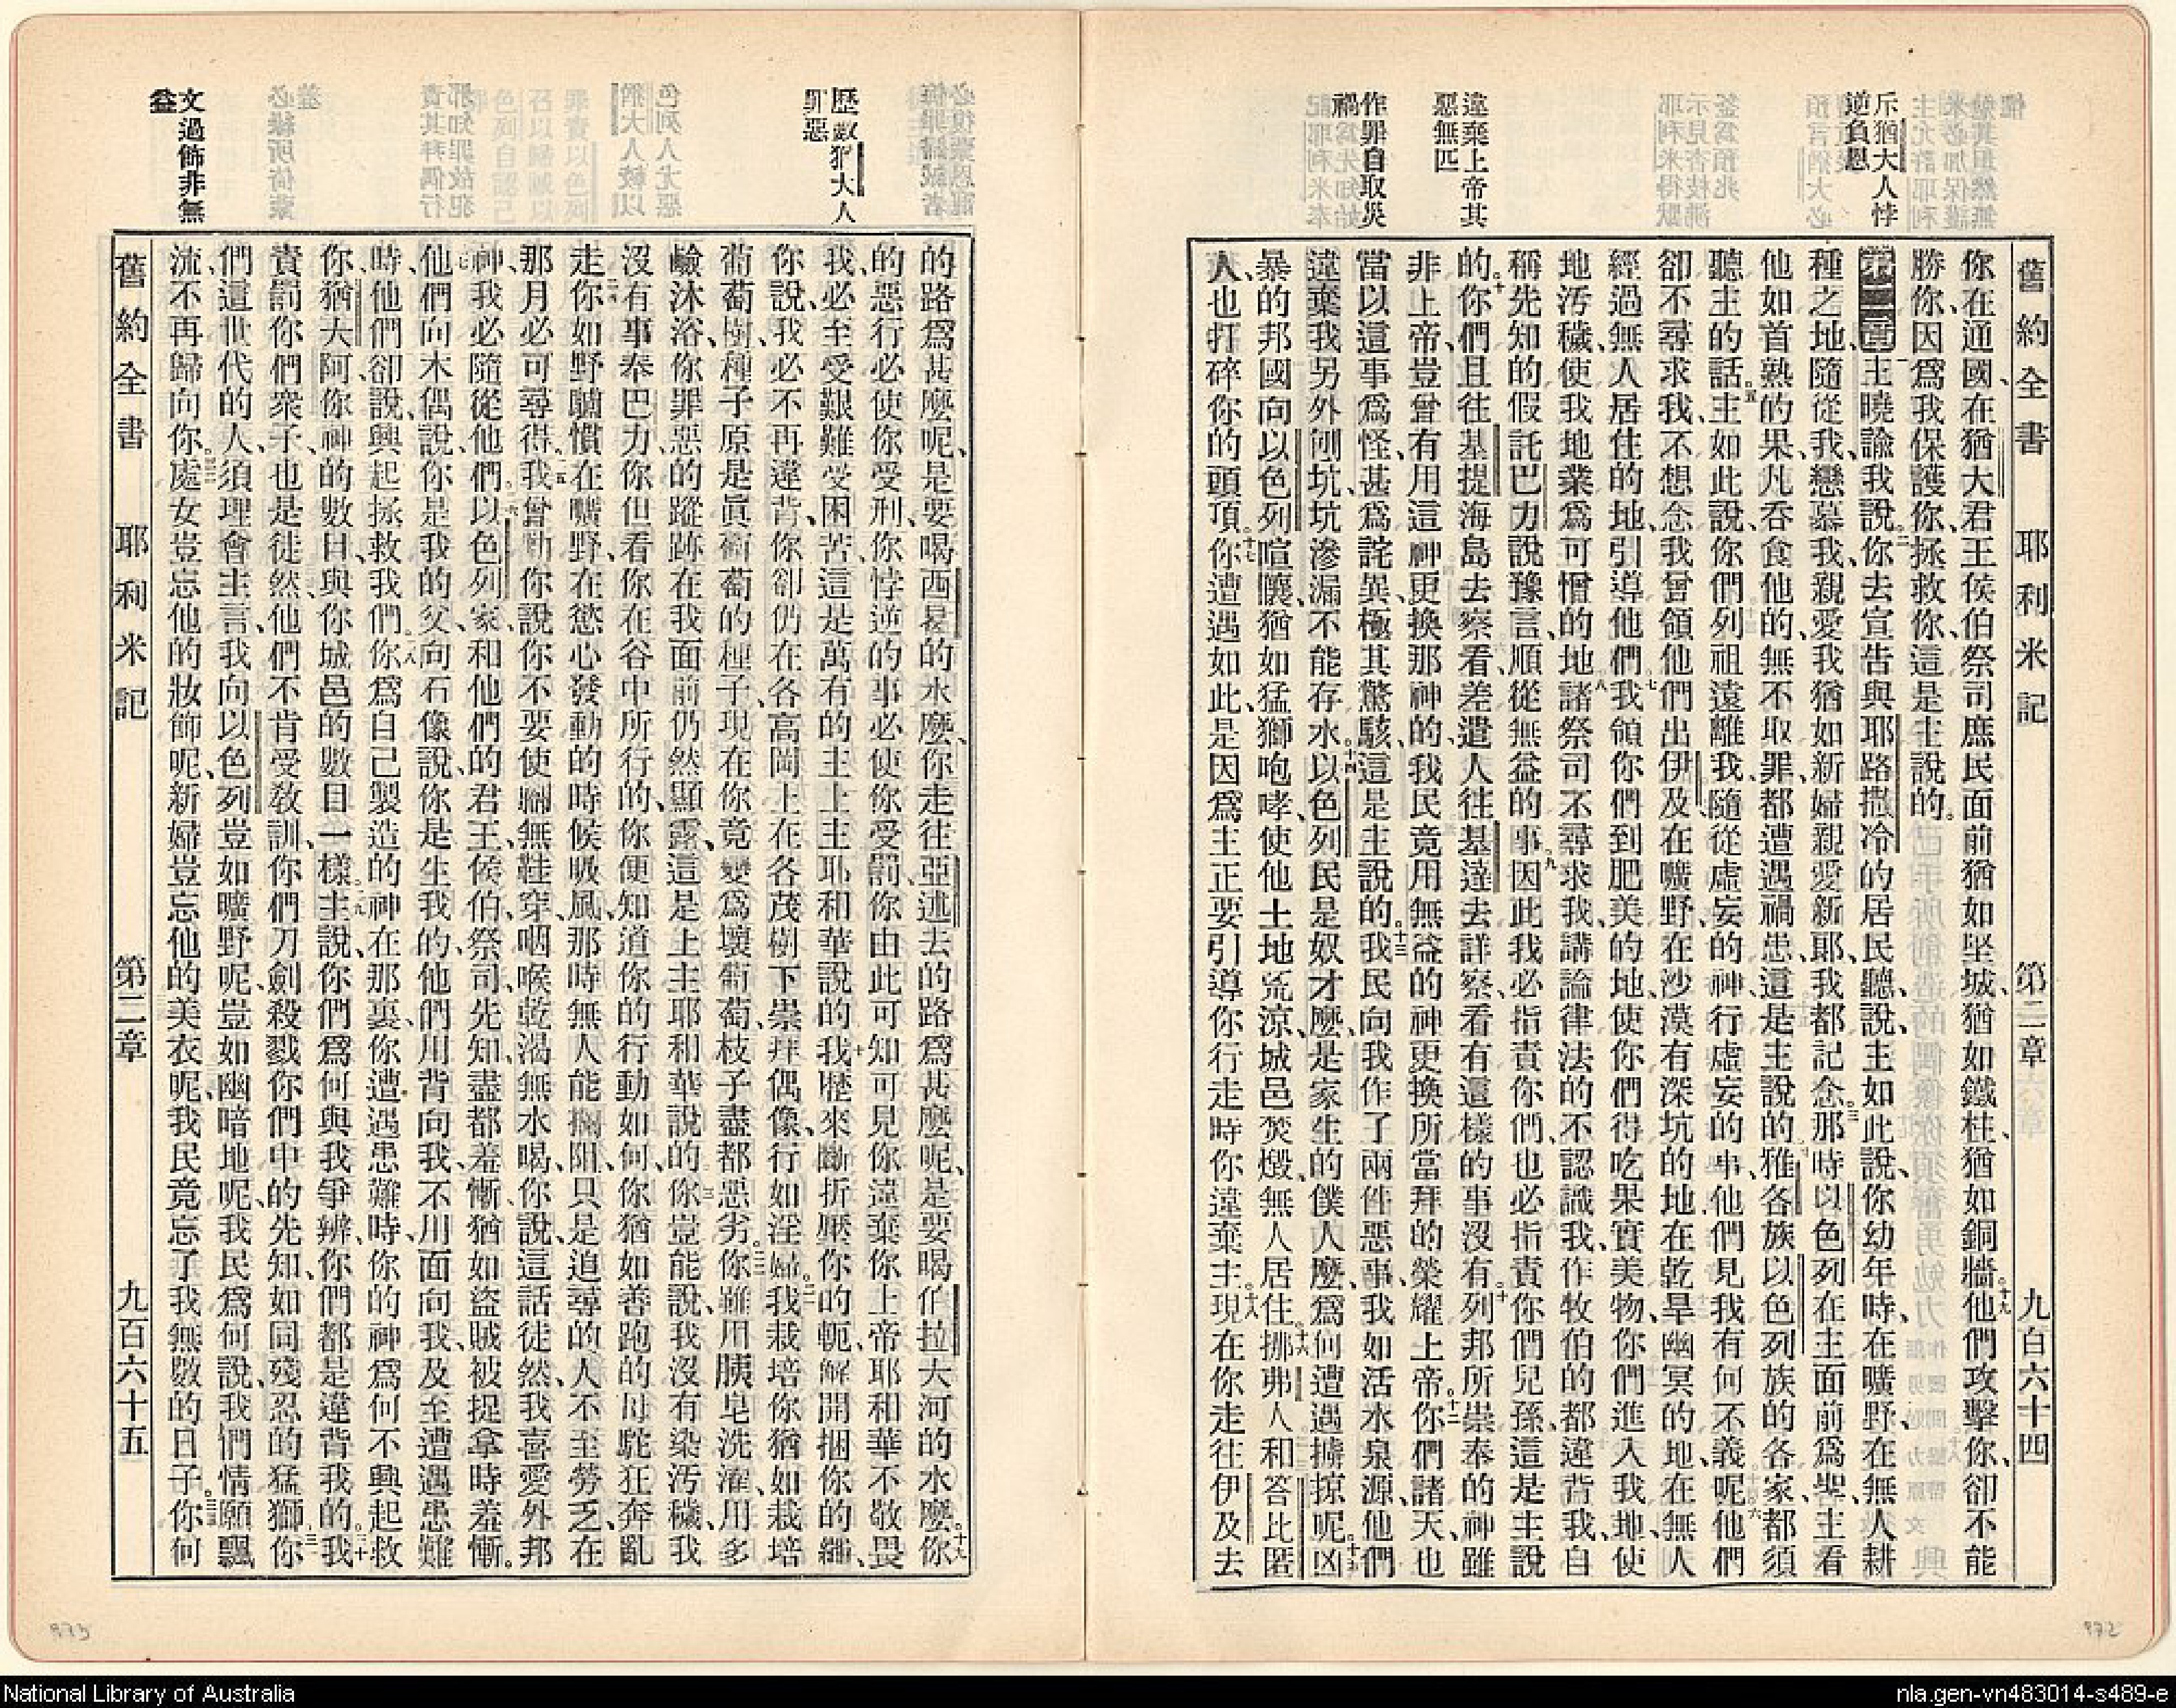 舊約全書 耶利米記 第二章 九百六十四
斥猶大人悖
逆負恩
違棄上帝其
惡無匹
作罪自取災
禍
你在通國、在猶大君王侯伯祭司庶民面前猶如坚城、猶如鐵柱、猶如銅牆。十九他們攻擊你、卻不能
勝你、因爲我保護你、拯救你、這是主說的。
第二章一主曉諭我說、二你去宣告與耶路撒冷的居民聽、說、主如此說、你幼年時、在曠野、在無人耕
種之地、隨從我、戀慕我、親愛我、猶如新婦親愛新耶、我都記念。三那時以色列在主面前爲聖、主看
他如首熟的果、凡吞食他的、無不取罪、都遭遇禍患、這是主說的。四雅各族以色列族的各家、都須
聽主的話。五主如此說、你們列祖遠離我、隨從虛妄的神、行虛妄的事、他們見我有何不義呢。六他們
卻不尋求我、不想念我曾領他們出伊及、在曠野、在沙漠有深坑的地、在乾旱幽冥的地、在無人
經過無人居住的地、引導他們。七我領你們到肥美的地、使你們得吃果實美物、你們進入我地、使
地汚穢、使我地業爲可憎的地。八諸祭司不尋求我、講論律法的不認識我、作牧伯的都違背我、自
稱先知的假託巴力說豫言、順從無益的事。九因此我必指責你們、也必指責你們兒孫、這是主說
的。十你們且往基提海島去察看、差遣人往基達去詳察、看有這樣的事沒有。十一列邦所崇奉的神雖
非上帝、豈曾有用這神更換那神的、我民竟用無益的神更換所當拜的榮耀上帝。十二你們諸天也
當以這事爲怪、甚爲詫異、極其驚駭、這是主說的。十三我民向我作了兩件惡事、我如活水泉源、他們
違棄我、另外刨坑、坑滲漏不能存水。十四以色列民是奴才麼、是家生的僕人麼、爲何遭遇擄掠呢。十五凶
暴的邦國向以色列喧嚷、猶如猛獅咆哮、使他土地荒涼、城邑焚燬、無人居住。十六挪弗人和答比匿
人也打碎你的頭頂。十七你遭遇如此、是因爲主正要引導你行走時、你違棄主。十八現在你走往伊及去
歷數猶大人
罪惡
文過飾非無
益
的路爲甚麼呢、是要喝西曷的水麼、你走往亞述去的路爲甚麼呢、是要喝伯拉大河的水麼。十九你
的惡行必使你受刑、你悖逆的事必使你受罰、你由此可知可見你違棄你上帝耶和華不敬畏
我、必至受艱難、受困苦、這是萬有的主上主耶和華說的。二十我歷來斷折壓你的軛、解開捆你的繩、
你說、我必不再違背、你卻仍在各高岡上、在各茂樹下崇拜偶像、行如淫婦。二一我栽培你、猶如栽培
葡萄樹、種子原是眞葡萄的種子、現在你竟變爲壞葡萄、枝子盡都惡劣。二二你雖用胰皂洗濯、用多
鹼沐浴、你罪惡的蹤跡在我面前仍然顯露、這是上主耶和華說的。二三你豈能說、我沒有染汚穢、我
沒有事奉巴力、你但看你在谷中所行的、你便知道你的行動如何、你猶如善跑的母駝狂奔亂
走。二四你如野驢慣在曠野、在慾心發動的時候吸風、那時無人能攔阻、只是追尋的人不至勞乏、在
那月必可尋得。二五我曾勸你說、你不要使腳無鞋穿、咽喉乾渴無水喝、你說、這話徒然、我喜愛外邦
神、我必隨從他們。二六以色列家和他們的君王、侯伯、祭司、先知、盡都羞慚、猶如盜賊被捉拿時羞慚。
二七他們向木偶說、你是我的父、向石像說、你是生我的、他們用背向我、不用面向我、及至遭遇患難
時、他們卻說、興起拯救我們。二八你爲自己製造的神在那裏、你遭遇患難時、你的神爲何不興起救
你、猶大阿、你神的數目、與你城邑的數目一樣。二九主說、你們爲何與我爭辨、你們都是違背我的。三十我
責罰你們衆子也是徒然、他們不肯受敎訓、你們刀劍殺戮你們中的先知、如同殘忍的猛獅。三一你
們這世代的人、須理會主言、我向以色列豈如曠野呢、豈如幽暗地呢、我民爲何說、我們情願飄
流、不再歸向你。三二處女豈忘他的妝飾呢、新婦豈忘他的美衣呢、我民竟忘了我無數的日子。三三你何
舊約全書 耶利米記 第二章 九百六十五
973
972
National Library of Australia
nla.gen-vn483014-s489-e